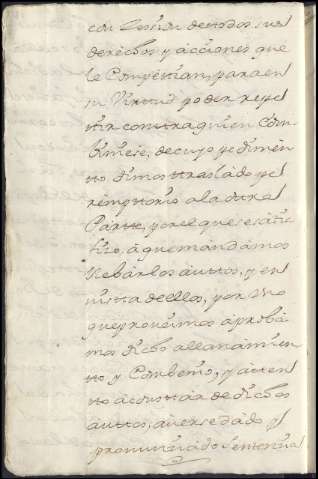 con Cesion de todos sus
derechos y acciones que
le Competian, para en
su Virtud poder repe
tir contra quien Com
biniese, de cuyo pedimen
to dimos traslado pe
remptorio a la otra
Parte, y por el que se
a que mandamos
llebar los autos, y en
vista de ellos, por Uno
que proveimos aproba
mos dicho allanamien
to y Combenio, y aten
to a constar de dichos
autos, averse dado y
pronunciado Sentencia